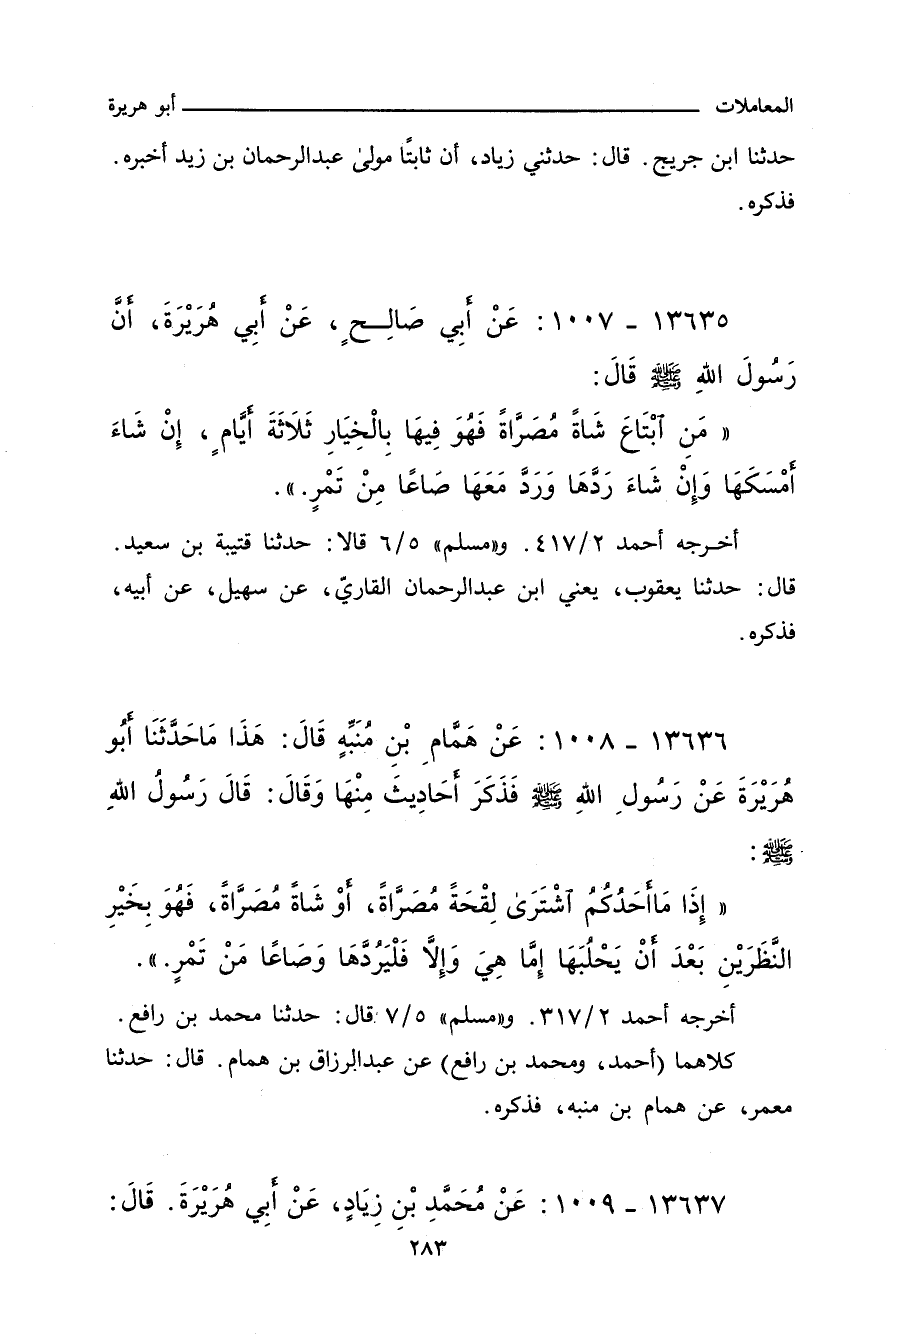 المعاملات ــــــــــــــــــــ أبو هريرة
حدثنا ابن جريج. قال: حدثني زياد، أن ثابتًا مولىٰ عبدالرحمان بن زيد أخبره.
فذكره.
١٣٦٣٥ - ١٠٠٧: عَنْ أَبِي صَالِـحٍ، عَنْ أَبِي هُرَيْرَةَ، أَنَّ
رَسُولَ اللهِ ﷺ قَالَ:
« مَنِ ٱبْتَاعَ شَاةً مُصَرَّاةً فَهُوَ فِيهَا بِالْخِيَارِ ثَلَاثَةَ أَيَّامٍ، إِنْ شَاءَ
أَمْسَكَهَا وَإِنْ شَاءَ رَدَّهَا وَرَدَّ مَعَهَا صَاعًا مِنْ تَمْرٍ.».
أخـرجه أحمد ٤١٧/٢. و«مسلم» ٦/٥ قالا: حدثنا قتيبة بن سعيد.
قال: حدثنا يعقوب، يعني ابن عبدالرحمان القاريّ، عن سهيل، عن أبيه،
فذكره.
١٣٦٣٦ - ١٠٠٨: عَنْ هَمَّامِ بْنِ مُنَبِّهٍ قَالَ: هَذَا مَاحَدَّثَنَا أَبُو
هُرَيْرَةَ عَنْ رَسُولِ اللهِ ﷺ فَذَكَرَ أَحَادِيثَ مِنْهَا وَقَالَ: قَالَ رَسُولُ اللهِ
ﷺ:
« إِذَا مَاأَحَدُكُمُ ٱشْتَرَىٰ لِقْحَةً مُصَرَّاةً، أَوْ شَاةً مُصَرَّاةً، فَهُوَ بِخَيْرِ
النَّظَرَيْنِ بَعْدَ أَنْ يَحْلُبَهَا إِمَّا هِيَ وَإِلَّا فَلْيَرُدَّهَا وَصَاعًا مَنْ تَمْرٍ.».
أخرجه أحمد ٣١٧/٢. و«مسلم» ٧/٥ قال: حدثنا محمد بن رافع.
كلاهما (أحمد، ومحمد بن رافع) عن عبدالرزاق بن همام. قال: حدثنا
معمر، عن همام بن منبه، فذكره.
١٣٦٣٧ - ١٠٠٩: عَنْ مُحَمَّدِ بْنِ زِيَادٍ، عَنْ أَبِي هُرَيْرَةَ. قَالَ:
٢٨٣